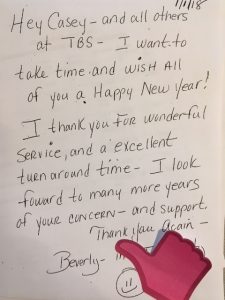 1/1/18
Hey Casey - and all others
at TBS - I want to
take time and wish All
of you a Happy New Year!
I thank you for wonderful
Service, and a excellent
turn around time - I look
foward to many more years
of your concern - and support.
Thank you Again -
Beverly -